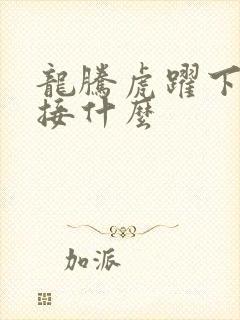 龍騰虎躍下
接什麼
加派